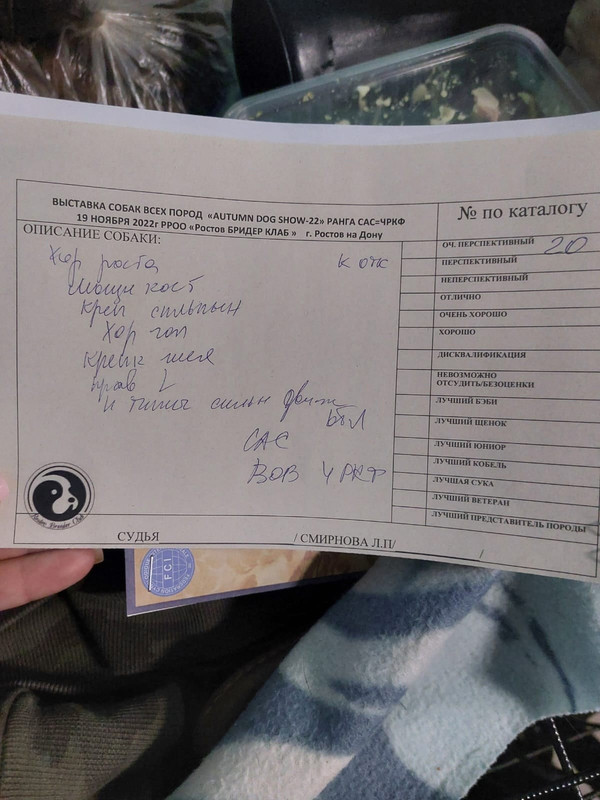 ВЫСТАВКА СОБАК ВСЕХ ПОРОД «AUTUMN DOG SHOW-22» РАНГА САС=ЧРКФ
19 НОЯБРЯ 2022г РРОО «Ростов БРИДЕР КЛАБ» г. Ростов на Дону
№ по каталогу
20
ОПИСАНИЕ СОБАКИ:
Хор роста к отк
мощн кост
креп сильный
Хор гол
Крепк шея
прав
и типы сильн движ
САС
ВОВ ЧРКФ
ОЧ. ПЕРСПЕКТИВНЫЙ
ПЕРСПЕКТИВНЫЙ
НЕПЕРСПЕКТИВНЫЙ
ОТЛИЧНО
ОЧЕНЬ ХОРОШО
ХОРОШО
ДИСКВАЛИФИКАЦИЯ
НЕВОЗМОЖНО
ОТСУДИТЬ/БЕЗОЦЕНКИ
ЛУЧШИЙ БЭБИ
ЛУЧШИЙ ЩЕНОК
ЛУЧШИЙ ЮНИОР
ЛУЧШИЙ КОБЕЛЬ
ЛУЧШАЯ СУКА
ЛУЧШИЙ ВЕТЕРАН
ЛУЧШИЙ ПРЕДСТАВИТЕЛЬ ПОРОДЫ
СУДЬЯ / СМИРНОВА Л.П/ /
FCI